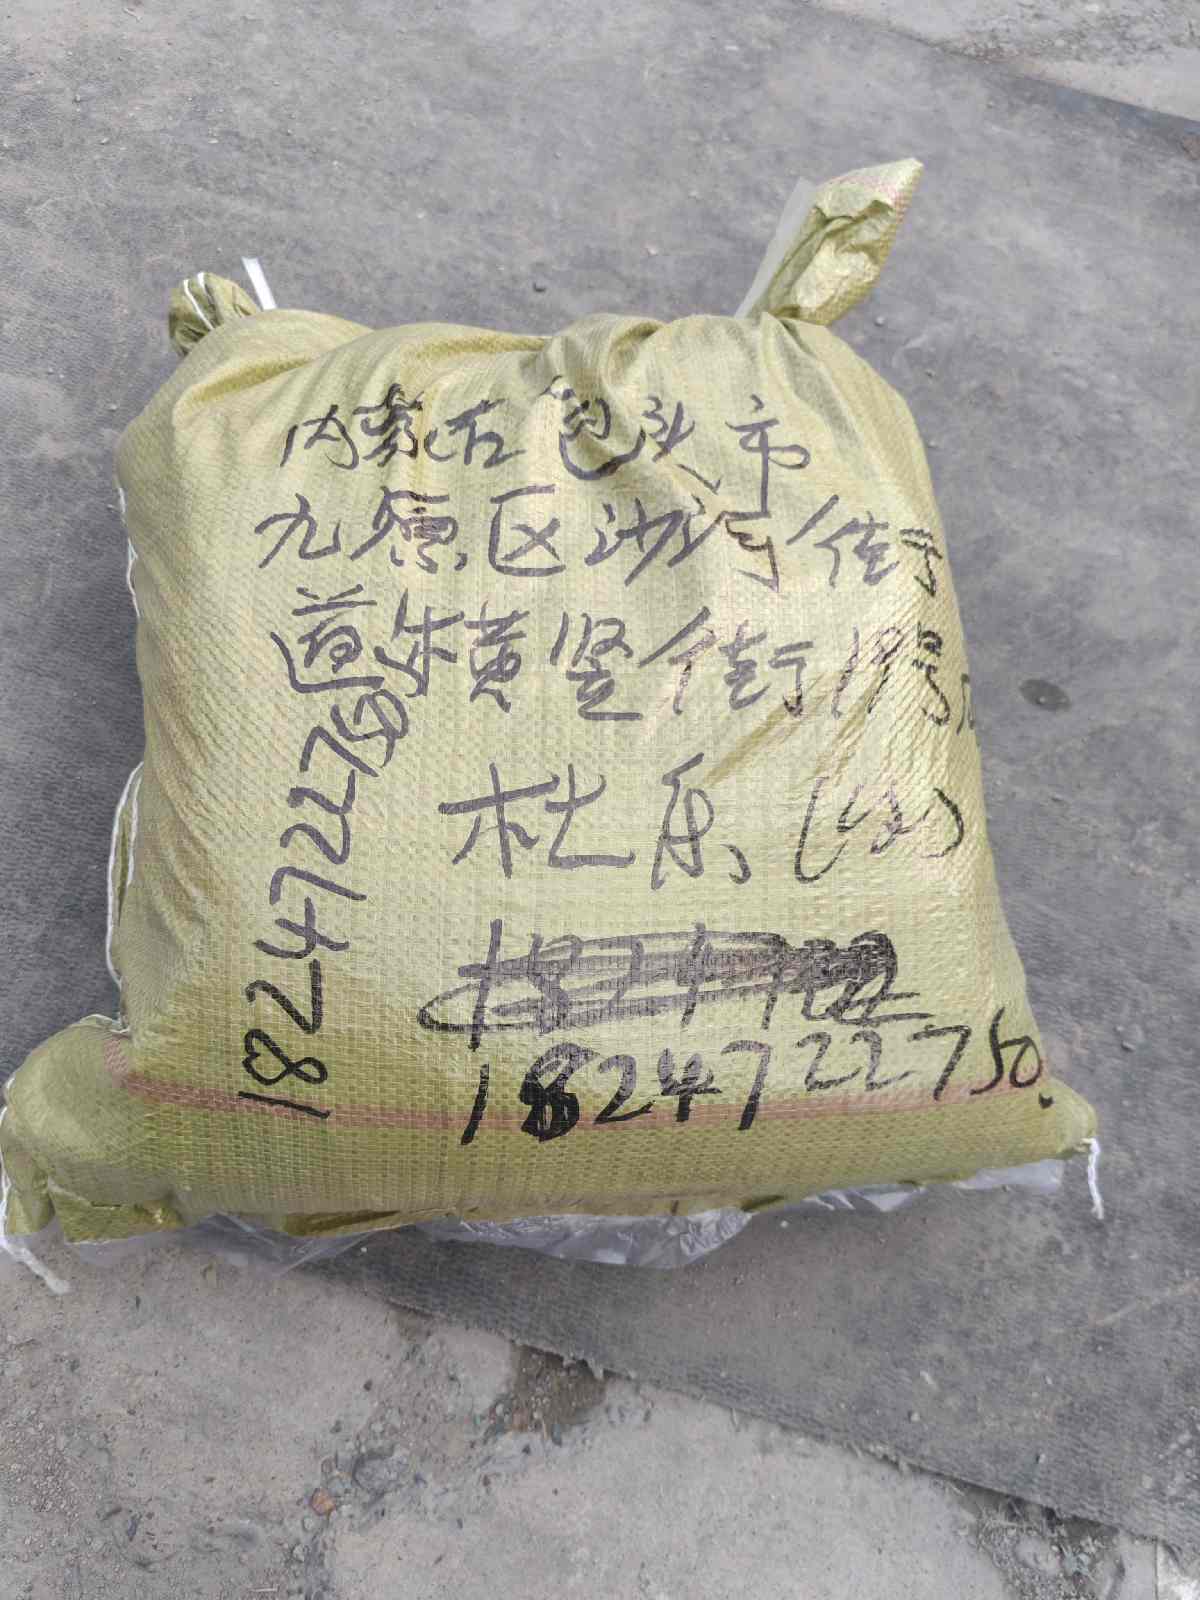 内蒙古包头市
九原区沙河街
道东黄竖街19号
杜乐
1824722750
1824722750